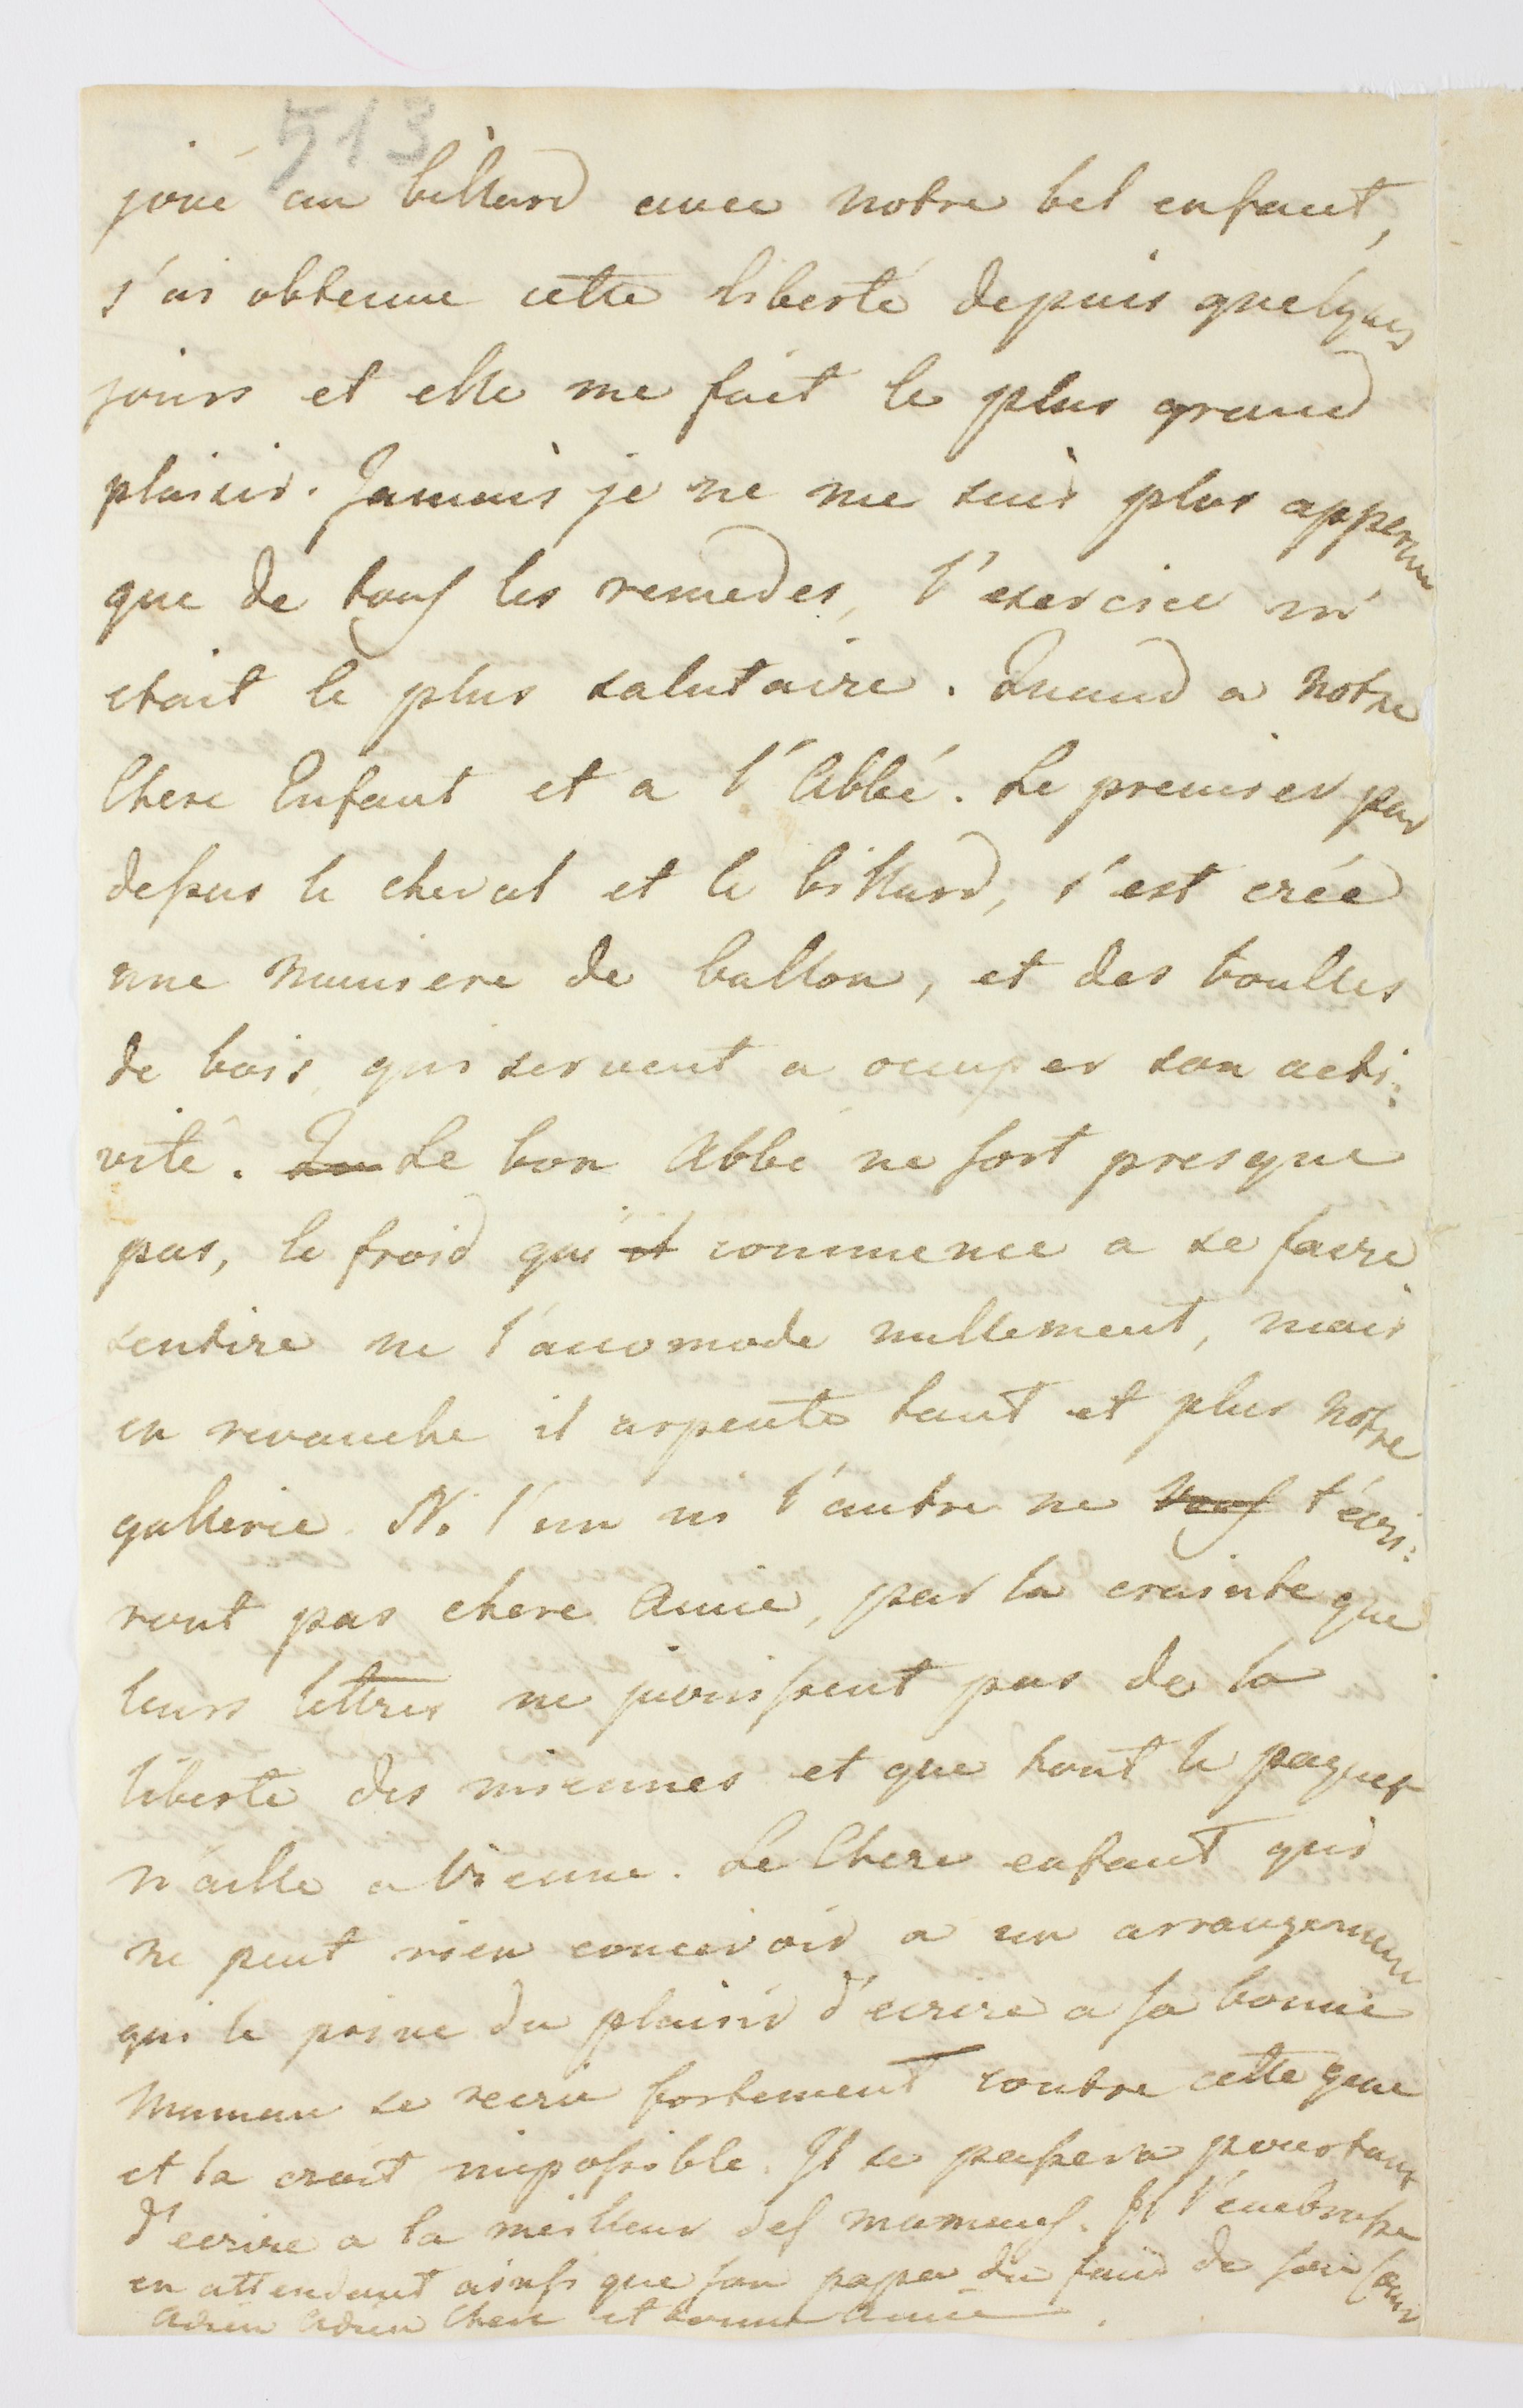 513
joué au billard avec notre bel enfant,
j'ai obtenue cette liberté depuis quelques
jours et elle me fait le plus grand
plaisir. Jamais je ne me suis plus apperçu
que de tous les remedes, l'exercice m'
etait le plus salutaire. Quand a notre
Chere Enfant et a l'Abbé. Le premier par
dessus le cheval et le billard, s'est crée
une maniere de ballon, et des boulles
de bois, qui servent a ocuper son acti:
vité. Le bon Abbé ne sort presque
pas, le froid qui il commence a se faire
sentire ne l'acomode nullement, mais
en revanche il arpente tant et plus notre
gallerie. Ni l'un ni l'autre ne vous t'écri:
ront pas chere Amie, par la crainte que
leurs lettres ne jouissent pas de la
liberte des miennes et que tout le paquet
n'aille a Vienne. Le Chere enfant qui
ne peut rien concevoir a un arrangement
qui le prive du plaisir d'ecrire a sa bonne
Maman se recrie fortement contre cette gene
et la croit impossible. Il se passera pourtant
d'ecrire a la meilleur des mamans. Il t'embrasse
en attendant ainsi que son papa du fond de son coeur
Adieu Adieu Chere et bonne Amie.